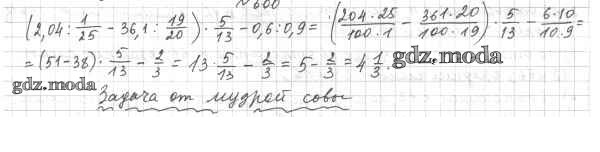 №600
(2,04 : 1/25 - 36,1 : 19/20) · 5/13 - 0,6 : 0,9 = (204·25/100·1 - 361·20/100·19) · 5/13 - 6·10/10·9 =
= (51-38) · 5/13 - 2/3 = 13 · 5/13 - 2/3 = 5 - 2/3 = 4 1/3. gdz.moda
gdz.moda
Задача от мудрой совы